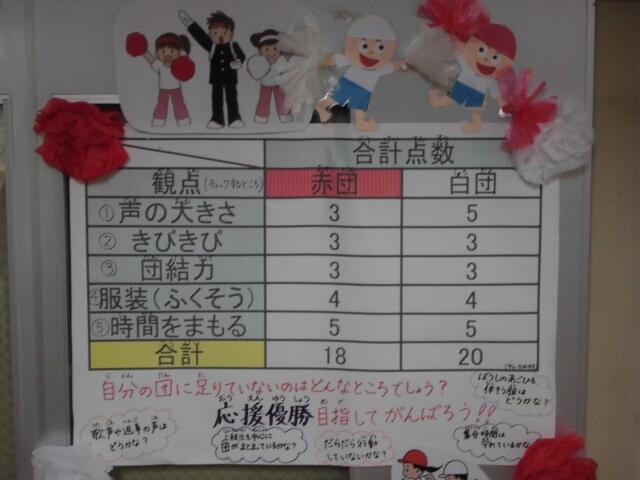 合計点数
観点(チェックするところ) 赤団 白団
①声の大きさ 3 5
② きびきび 3 3
③ 団結力 3 3
④服装(ふくそう) 4 4
⑤時間をまもる 5 5
合計 18 20
自分の団に足りていないのはどんなところでしょう?
応援優勝目指してがんばろう!!
ぼうしのあごひも、
体そう服は
どうかな?
歌声や返事の声は
どうかな?
上級生を中心に
団がまとまっているかな?
だらだら行動
していないかな?
集合時間は
守れているかな?